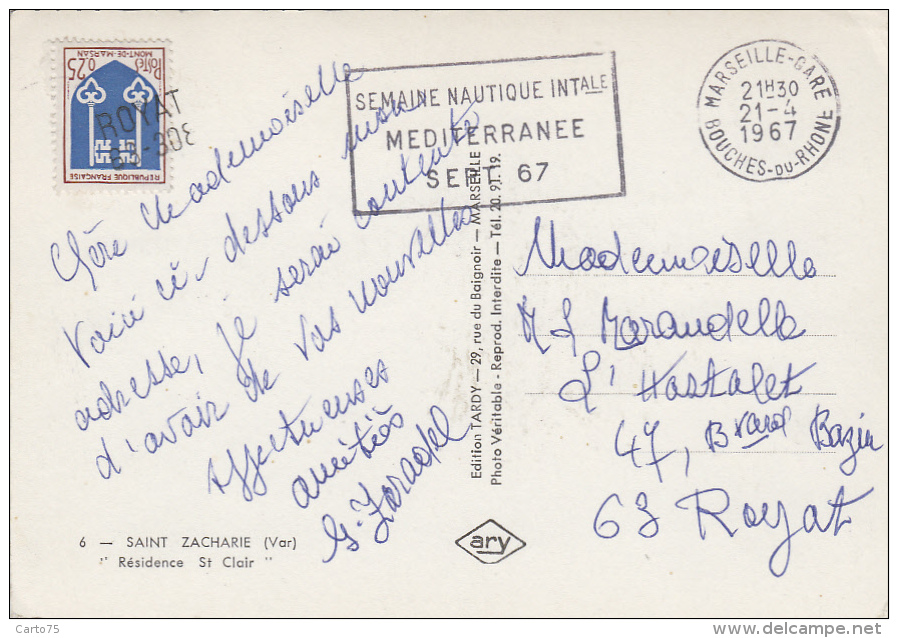 0,25
POSTES
MONT-DE-MARSAN
REPUBLIQUE FRANÇAISE
ROYAT
63-306
SEMAINE NAUTIQUE INTALE
MEDITERRANEE
SEPT. 67
MARSEILLE-GARE
21H30
21-4
1967
BOUCHES-DU-RHÔNE
Chère Mademoiselle
Voici ci-dessous mon
adresse, je serai contente
d'avoir de vos nouvelles
Affectueuses
amitiés
G. Zaradel
Edition TARDY — 29, rue du Baignoir — MARSEILLE
Photo Véritable - Reprod. Interdite — Tél. 20.91.19.
Mademoiselle
M L Marandella
L'Hastalet
47, Bvard Bazin
63 Royat
6 — SAINT ZACHARIE (Var)
" Résidence St Clair "
ary
Carto75
www.delcampe.net